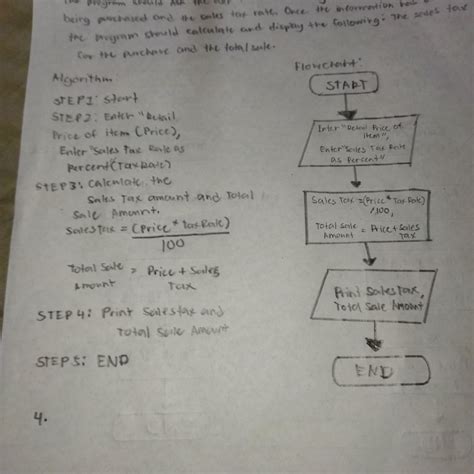 the program should ask the user
being purchased and the sales tax rate. Once the information has
the program should calculate and display the following: The sales tax
for the purchase and the total sale.
Algorithm
STEP1: Start
STEP2: Enter "Retail
Price of Item (Price),
Enter "Sales Tax Rate as
Percent (TaxRate)
STEP3: Calculate the
Sales Tax amount and Total
Sale Amount.
SalesTax = (Price * TaxRate)
100
Total Sale = Price + Sales
Amount Tax
STEP 4: Print SalesTax and
Total Sale Amount
STEP5: END
4.
Flowchart:
START
Enter "Retail Price of
Item",
Enter "Sales Tax Rate
as Percent"
Sales Tax = (Price * Tax Rate)
/100,
Total Sale = Price + Sales
Amount Tax
Print SalesTax,
Total Sale Amount
END